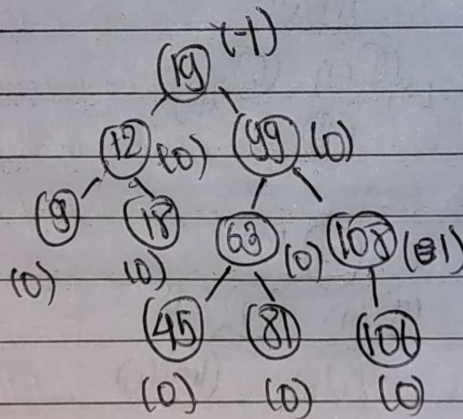 19 (-1)
12 (0) 99 (0)
9 18 63 (0) 108 (1)
(0) (0)
45 81 106
(0) (0) (0)